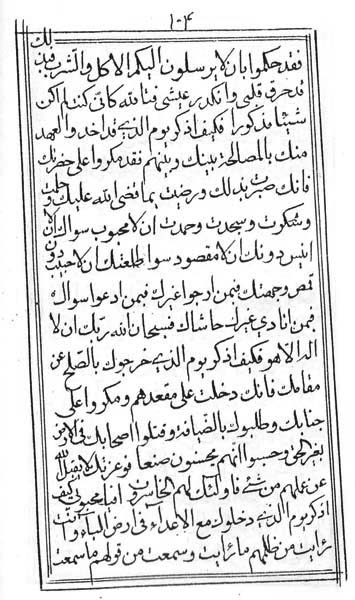 ١٠٤
فقد حكموا بان لا يرسلون اليكم الاكل والشرب فبذلك
قد حرق قلبي وانكدر عيشي فتالله كانى كنت لم اكن
شيئا مذكورا فكيف اذكر يوم الذي قد اخذوا العهد
منك بالمصالحة بينك وبينهم فقد مكروا على حضرتك
فانك صبرت بذلك ورضيت بما قضى الله عليك وحلمت
وشكرت وسجدت وحمدت ان لا محبوب سواك لا
انيس دونك ان لا مقصود سوا طلعتك ان لا حبيب دون
وجهتك فبمن ارجوا غيرك فبمن ادعوا سواك
فبمن انادي غيرك حاشاك فسبحان الله ربك ان لا
اله الا هو فكيف اذكر يوم الذي خرجوك بالصلح عن
مقامك فانك دخلت على مقعدهم ومكروا على
جنابك وطلبوك بالضيافة وقتلوا اصحابك فى الارض
بغير الحق وحسبوا انهم يحسنون صنعا فوعزتك لا يقبل الله
عن عملهم من شئ فاولئك لهم الخاسرون فيا محبوبي كيف
اذكر يوم الذي دخلوك مع الاعداء فى ارض الباء وانت
رايت من ظلمهم ما رايت وسمعت من قولهم ما سمعت